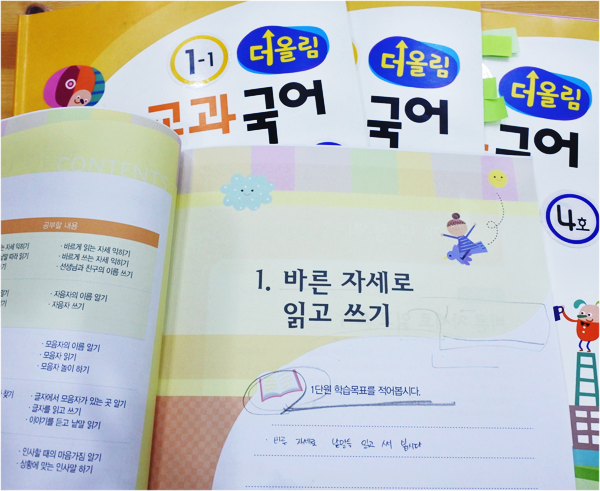 1-1
더올림
교과국어
더올림
국어
더올림
국어
4호
공부할 내용
· 바르게 읽는 자세 익히기
· 바르게 쓰는 자세 익히기
· 선생님과 친구의 이름 쓰기
· 자음자의 이름 알기
· 자음자 쓰기
· 모음자의 이름 알기
· 모음자 읽기
· 모음자 놀이 하기
· 글자에서 모음자가 있는 곳 알기
· 글자를 읽고 쓰기
· 이야기를 듣고 낱말 읽기
· 인사할 때의 마음가짐 알기
· 상황에 맞는 인사말 하기
1. 바른 자세로
읽고 쓰기
1단원 학습목표를 적어봅시다.
· 바른 자세로 낱말을 읽고 써 봅시다